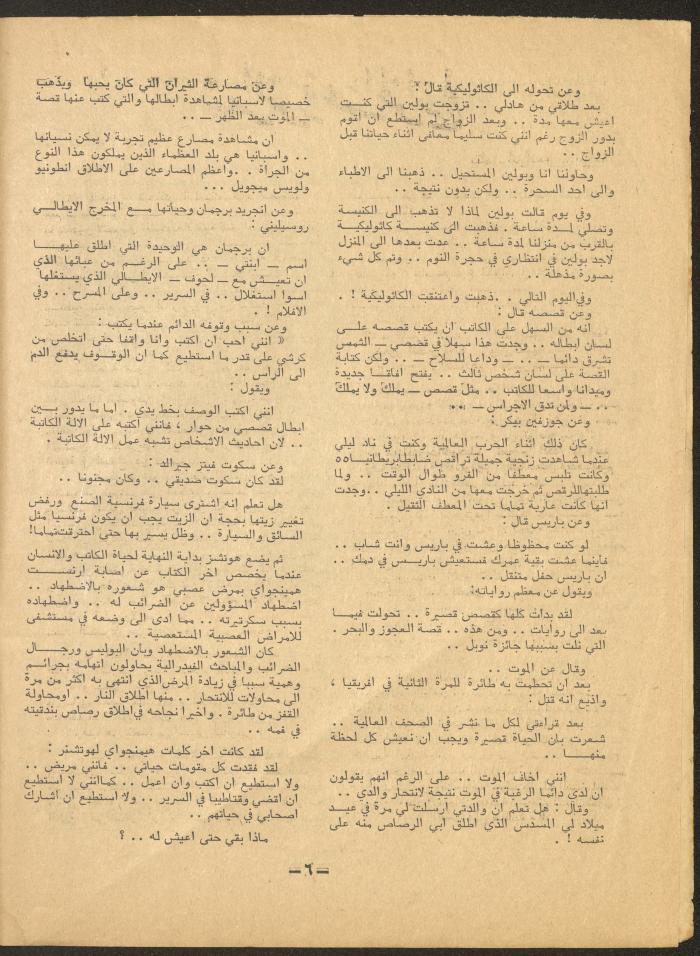 وعن تحوله الى الكاثوليكية قال :
بعد طلاقي من هادلي . . تزوجت بولين التي كنت
اعيش معها مدة . . وبعد الزواج لم استطع ان اقوم
بدور الزوج رغم انني كنت سليما معافى اثناء حياتنا قبل
الزواج . .
وحاولنا انا وبولين المستحيل . . ذهبنا الى الاطباء
والى احد السحرة . . ولكن بدون نتيجة . .
وفي يوم قالت بولين لماذا لا تذهب الى الكنيسة
وتصلي لمدة ساعة . فذهبت الى كنيسة كاثوليكية
بالقرب من منزلنا لمدة ساعة . . عدت بعدها الى المنزل
لاجد بولين في انتظاري في حجرة النوم . . وتم كل شيء
بصورة مذهلة . .
وفي اليوم التالي . . ذهبت واعتنقت الكاثوليكية ! .
وعن قصصه قال :
انه من السهل على الكاتب ان يكتب قصصه على
لسان ابطاله . . وجدت هذا سهلا في قصصي ــ الشمس
تشرق دائما ــ . . ــ وداعا للسلاح ــ . . ولكن كتابة
القصة على لسان شخص ثالث . . يفتح افاقا جديدة
وميدانا واسعا للكاتب . . مثل قصص ــ يملك ولا يملك
. . ــ ولمن تدق الاجراس ــ . .
وعن جوزفين بيكر :
كان ذلك اثناء الحرب العالمية وكنت في ناد ليلي
عندما شاهدت زنجية جميلة تراقص ضابطا بريطانيا ٥٥
وكانت تلبس معطفا من الفرو طوال الوقت . . ولما
طلبتها للرقص ثم خرجت معها من النادي الليلي . . وجدت
انها كانت عارية تماما تحت المعطف الثقيل .
وعن باريس قال :
لو كنت محظوظا وعشت في باريس وانت شاب . .
فاينما عشت بقية عمرك فستعيش باريس في دمك . .
ان باريس حفل متنقل . .
ويقول عن معظم رواياته:
لقد بدات كلها كقصص قصيرة . . تحولت فيما
بعد الى روايات . . ومن هذه . . قصة العجوز والبحر .
التي نلت بسببها جائزة نوبل . .
وقال عن الموت . .
بعد ان تحطمت به طائرة للمرة الثانية في افريقيا ،
واذيع انه قتل :
بعد قراءتي لكل ما نشر في الصحف العالمية . .
شعرت بان الحياة قصيرة ويجب ان نعيش كل لحظة
منها . .
انني اخاف الموت . . على الرغم انهم يقولون
ان لدي دائما الرغبة في الموت نتيجة لانتحار والدي . .
وقال : هل تعلم ان والدتي ارسلت لي مرة في عيد
ميلاد لي المسدس الذي اطلق ابي الرصاص منه على
نفسه ! .
وعن مصارعة الثيران التي كان يحبها ويذهب
خصيصا لاسبانيا لمشاهدة ابطالها والتي كتب عنها قصة
ــ الموت بعد الظهر ــ . .
ان مشاهدة مصارع عظيم تجربة لا يمكن نسيانها
. . واسبانيا هي بلد العظماء الذين يملكون هذا النوع
من الجراة . . واعظم المصارعين على الاطلاق انطونيو
ولويس ميجويل . . .
وعن انجريد برجمان وحياتها مع المخرج الايطالي
روسيليني :
ان برجمان هي الوحيدة التي اطلق عليها
اسم ــ ابنتي ــ . . على الرغم من عبائها الذي
ان تعيش مع ــ لحوف ــ الايطالي الذي يستغلها
اسوا استغلال . . في السرير . . وعلى المسرح . . وفي
الافلام ! .
وعن سبب وقوفه الدائم عندما يكتب :
« انني احب ان اكتب وانا واقفا حتى اتخلص من
كرشي على قدر ما استطيع كما ان الوقوف يدفع الدم
الى الراس . .
ويقول :
انني اكتب الوصف بخط يدي . اما ما يدور بين
ابطال قصصي من حوار ، فانني اكتبه على الالة الكاتبة
. . لان احاديث الاشخاص تشبه عمل الالة الكاتبة .
وعن سكوت فيتز جيرالد :
لقد كان سكوت صديقي . . وكان مجنونا . .
هل تعلم انه اشترى سيارة فرنسية الصنع ورفض
تغيير زيتها بحجة ان الزيت يجب ان يكون فرنسيا مثل
السائق والسيارة . . وظل يسير بها حتى احترقت تماما!
ثم يضع هوتشنر بداية النهاية لحياة الكاتب والانسان
عندما يخصص اخر الكتاب عن اصابة ارنست
همينجواي بمرض عصبي هو شعوره بالاضطهاد . .
اضطهاد المسؤولين عن الضرائب له . . واضطهاده
بسبب سكرتيرته . . مما ادى الى وضعه في مستشفى
للامراض العصبية المستعصية . .
كان الشعور بالاضطهاد وبان البوليس ورجال
الضرائب والمباحث الفيدرالية يحاولون اتهامه بجرائم
وهمية سببا في زيادة المرض الذي انتهى به اكثر من مرة
الى محاولات للانتحار . . منها اطلاق النار . . او محاولة
القفز من طائرة . واخيرا نجاحه في اطلاق رصاص بندقيته
في فمه . .
لقد كانت اخر كلمات هيمنجواي لهوتشنر :
لقد فقدت كل مقومات حياتي . . فانني مريض . .
ولا استطيع ان اكتب وان اعمل . . كما انني لا استطيع
ان اقضي وقتا طيبا في السرير . . ولا استطيع ان اشارك
اصحابي في حياتهم . .
ماذا بقي حتى اعيش له . . ؟
ــ ٦ ــ